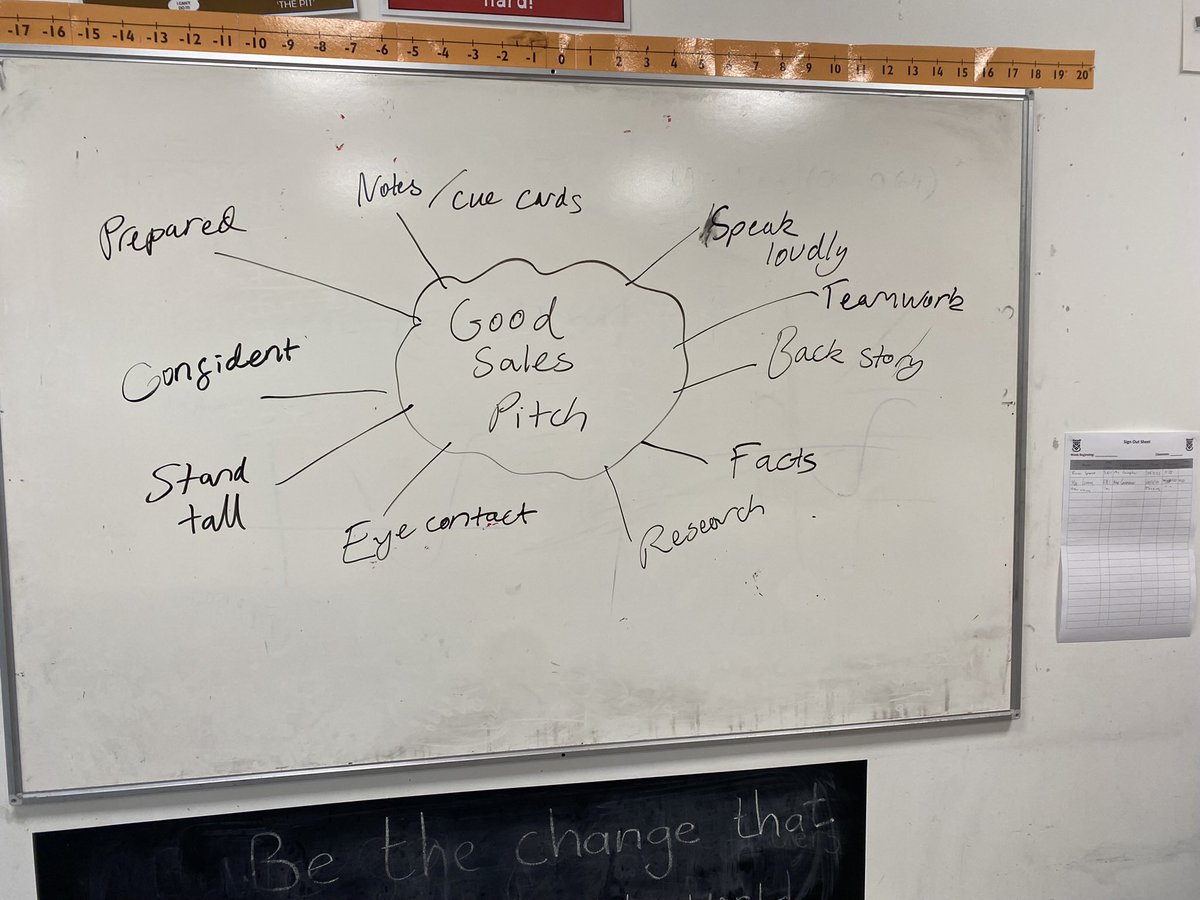 'THE PIT'
hard!
-17 -16 -15 -14 -13 -12 -11 -10 -9 -8 -7 -6 -5 -4 -3 -2 -1 0 1 2 3 4 5 6 7 8 9 10 11 12 13 14 15 16 17 18 19 20
Notes / cue cards
Prepared
Speak
loudly
Teamwork
Good
Sales
Pitch
Back story
Confident
Facts
Stand
tall
Eye contact
Research
Sign Out Sheet
Be the change that